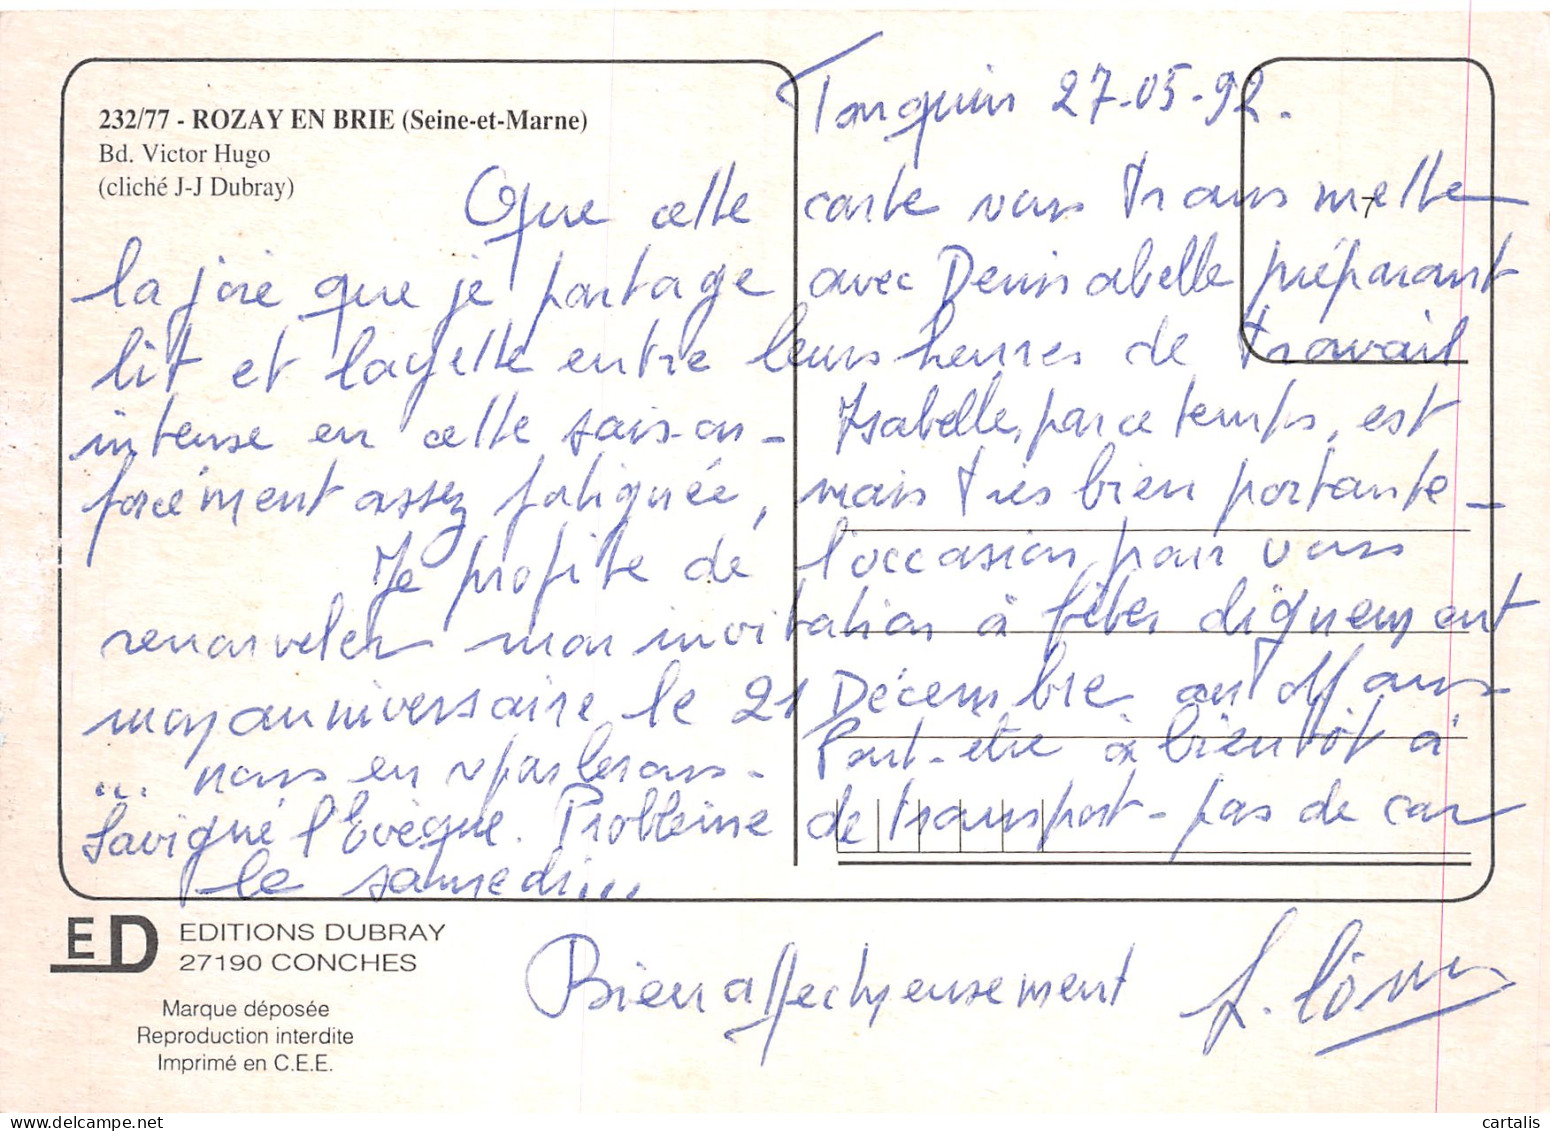 232/77 - ROZAY EN BRIE (Seine-et-Marne)
Bd. Victor Hugo
(cliché J-J Dubray)
Tonquin 27-05-92.
Que cette carte vous transmette
la joie que je partage avec Denis abelle préparant
lit et layette entre leurs heures de travail
intense en cette saison - Isabelle, par ce temps, est
forcément assez fatiguée, mais très bien portante -
Je profite de l'occasion pour vous
renouveler mon invitation à fêter dignement
mon anniversaire le 21 Décembre
... nous en reparlerons - Peut-être à bientôt à
Savigné l'Evêque. Problème de transport - pas de car
le samedi...
Bien affectueusement
ED EDITIONS DUBRAY
27190 CONCHES
Marque déposée
Reproduction interdite
Imprimé en C.E.E.
cartalis